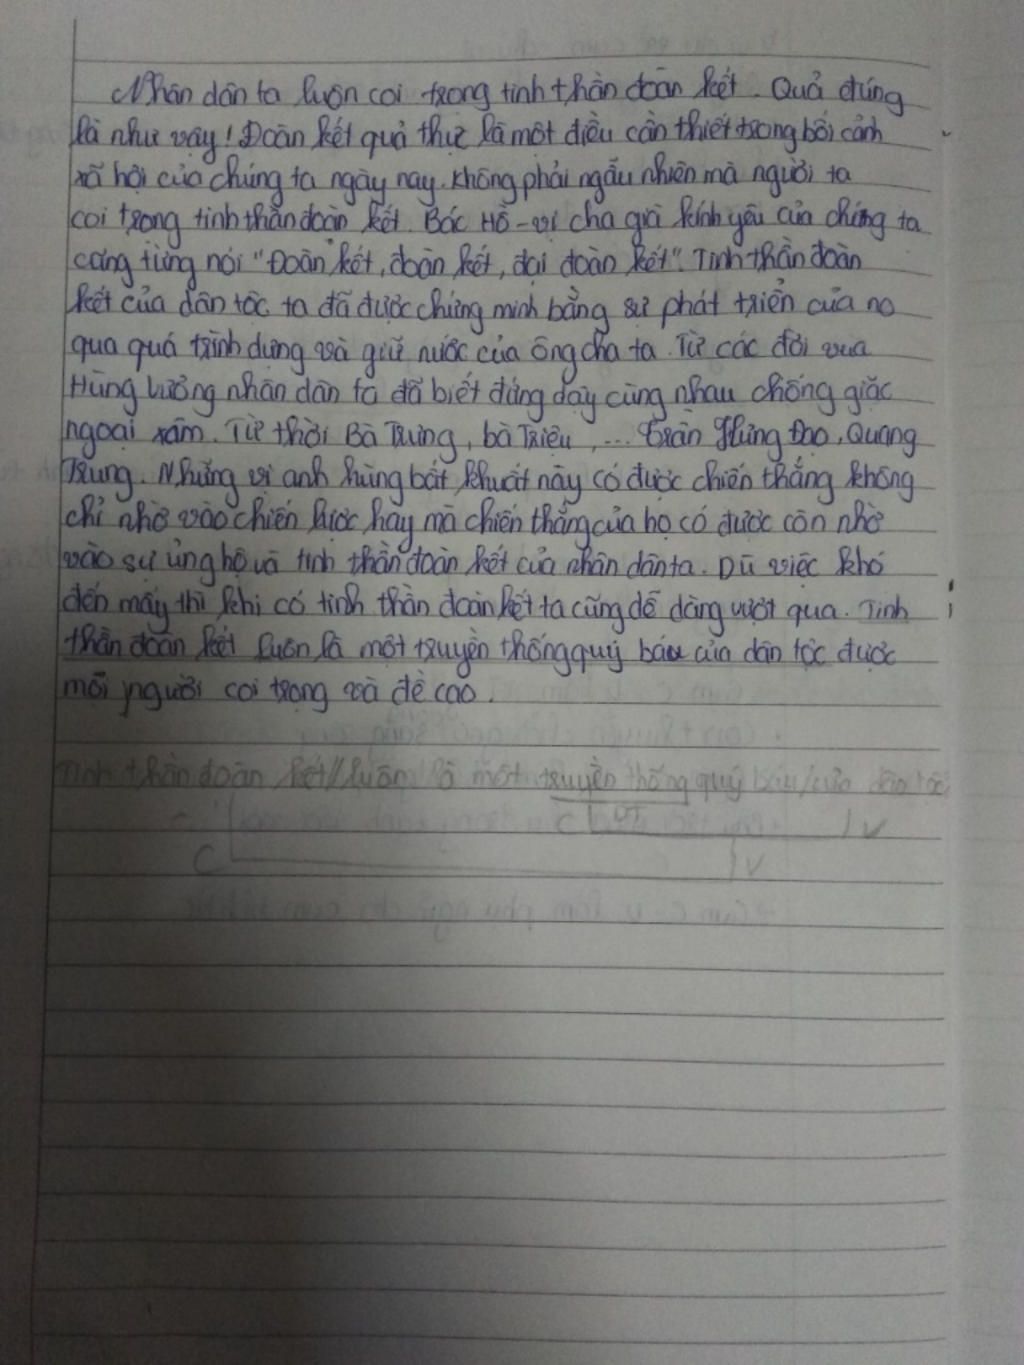 Nhân dân ta luôn coi trọng tinh thần đoàn kết. Quả đúng
là như vậy! Đoàn kết quả thực là một điều cần thiết trong bối cảnh
xã hội của chúng ta ngày nay. Không phải ngẫu nhiên mà người ta
coi trọng tinh thần đoàn kết. Bác Hồ - vị cha già kính yêu của chúng ta
cũng từng nói "Đoàn kết, đoàn kết, đại đoàn kết". Tinh thần đoàn
kết của dân tộc ta đã được chứng minh bằng sự phát triển của nó
qua quá trình dựng và giữ nước của ông cha ta. Từ các đời vua
Hùng Vương nhân dân ta đã biết đứng dậy cùng nhau chống giặc
ngoại xâm. Từ thời Bà Trưng, bà Triệu, ... Trần Hưng Đạo, Quang
Trung. Những vị anh hùng bất khuất này có được chiến thắng không
chỉ nhờ vào chiến lược hay mà chiến thắng của họ có được còn nhờ
vào sự ủng hộ và tinh thần đoàn kết của nhân dân ta. Dù việc khó
đến mấy thì khi có tinh thần đoàn kết ta cũng dễ dàng vượt qua. Tinh
thần đoàn kết luôn là một truyền thống quý báu của dân tộc được
mỗi người coi trọng và đề cao.
Tinh thần đoàn kết // luôn là một truyền thống quý báu / của dân tộc
C V
C V